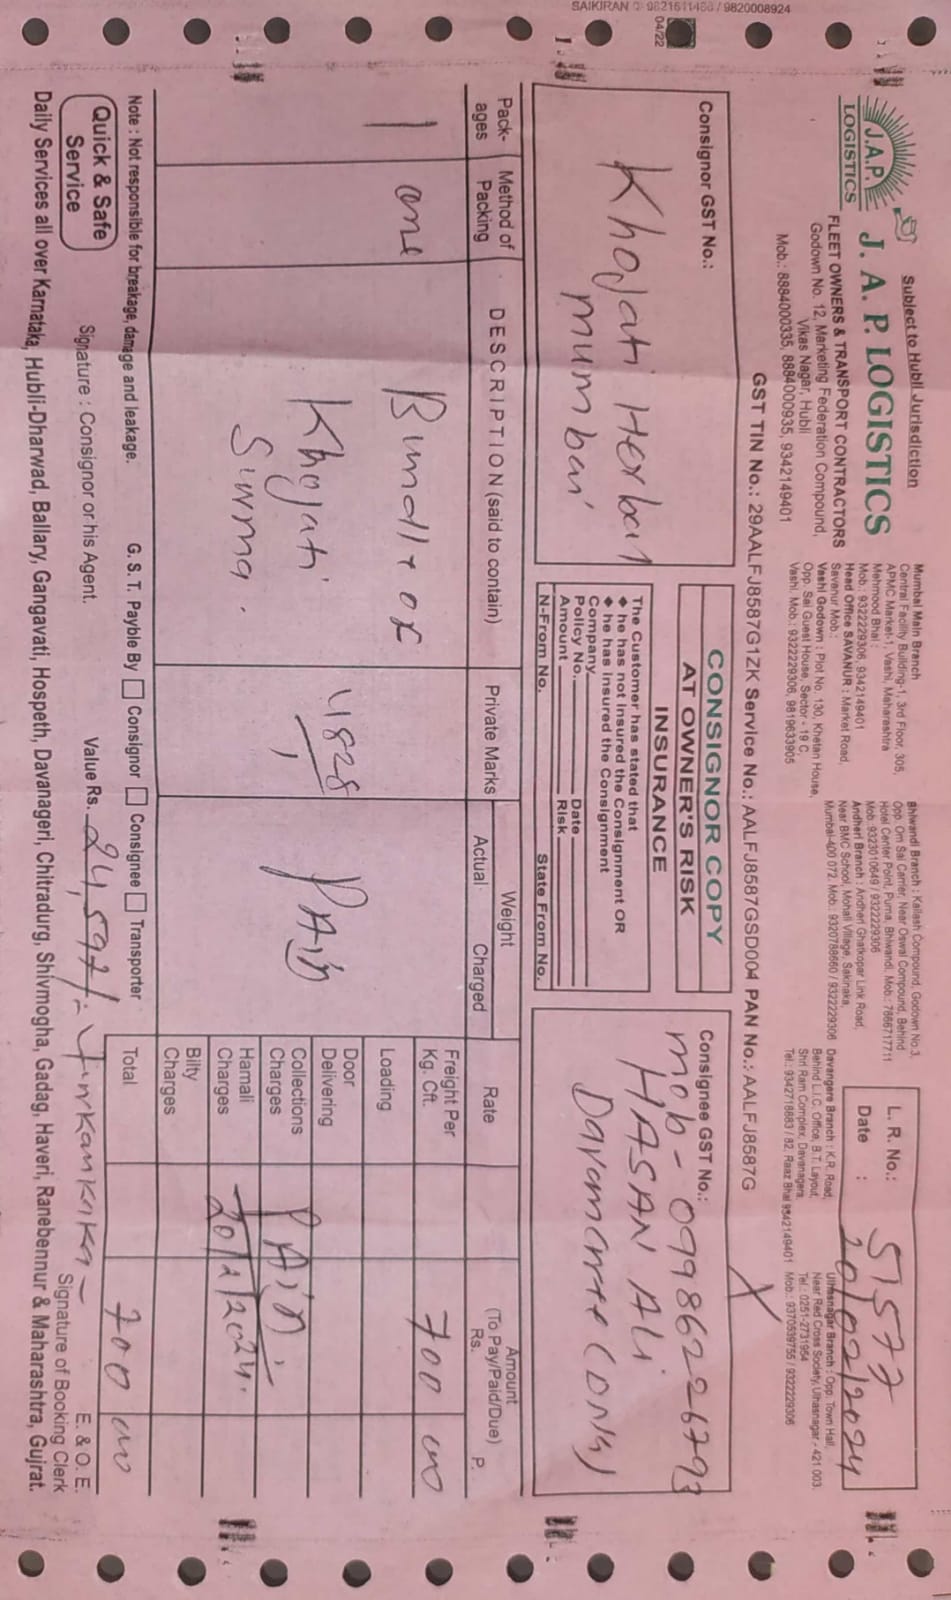 SAIKIRAN
9820008924
04/22
Subject to Hubli Jurisdiction
J.A.P.
LOGISTICS
J. A. P. LOGISTICS
FLEET OWNERS & TRANSPORT CONTRACTORS
Godown No. 12, Marketing Federation Compound,
Vikas Nagar, Hubli
Mob.: 8884000335, 8884000935, 9342149401
Mumbai Main Branch
Central Facility Building-1, 3rd Floor, 305,
APMC Market-1, Vashi, Maharashtra
Mehmood Bhai :
Mob.: 9322229306, 9342149401
Head Office SAVANUR : Market Road,
Savanur Mob.:
Vashi Godown : Plot No. 130, Khetan House,
Opp. Sai Guest House, Sector - 19 C,
Vashi. Mob.: 9322229306, 9819633905
Bhiwandi Branch : Kailash Compound, Godown No.3,
Opp. Om Sai Carrier, Near Oswal Compound, Behind
Hotel Center Point, Purna, Bhiwandi. Mob.: 7866717711
Mob.:9323010649 / 9322229306
Andheri Branch : Andheri Ghatkopar Link Road,
Near BMC School, Mohali Village, Sakinaka,
Mumbai-400 072. Mob.: 9320788660 / 9322229306
Davangere Branch : K.R. Road,
Behind L.I.C. Office, B.T. Layout,
Shri Ram Complex, Davanagara
Tel.: 9342718883 / 82, Raaz Bhai 9342149401
Ulhasnagar Branch : Opp. Town Hall,
Near Red Cross Society, Ulhasnagar - 421 003.
Tel.: 0251-2731954
Mob.: 9370539755 / 9322229306
L. R. No.: 51577
Date : 20/02/2024
GST TIN No.: 29AALFJ8587G1ZK Service No.: AALFJ8587GSD004 PAN No.: AALFJ8587G
Consignor GST No.:
Khojati Herbal
mumbai
CONSIGNOR COPY
AT OWNER'S RISK
INSURANCE
The Customer has stated that
◆ he has not insured the Consignment OR
◆ he has insured the Consignment
Company
Policy No. Date
Amount Risk
N-From No. State From No.
Consignee GST No.:
mob - 09986226793
HASAN ALI
Packages
Method of Packing
DESCRIPTION (said to contain)
Private Marks
Weight
Actual Charged
Rate
Amount
(To Pay/Paid/Due)
Rs. P.
1 one Bundle of
Khojati
Surma.
4828
PAID
Freight Per Kg. Cft. 700 00
Loading
Door Delivering
Collections Charges
Hamali Charges
Bilty Charges
PAID
20/2/2024.
Total 700 00
Note : Not responsible for breakage, damage and leakage.
G. S. T. Payble By Consignor Consignee Transporter
Quick & Safe
Service
Signature : Consignor or his Agent.
Value Rs. 24,597/-
E. & O. E.
Signature of Booking Clerk
Daily Services all over Karnataka, Hubli-Dharwad, Ballary, Gangavati, Hospeth, Davanageri, Chitradurg, Shivmogha, Gadag, Haveri, Ranebennur & Maharashtra, Gujrat.